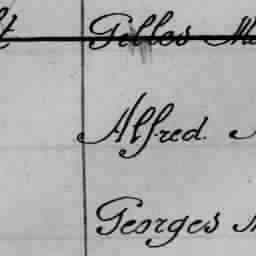 Gilles
Alfred.
Georges